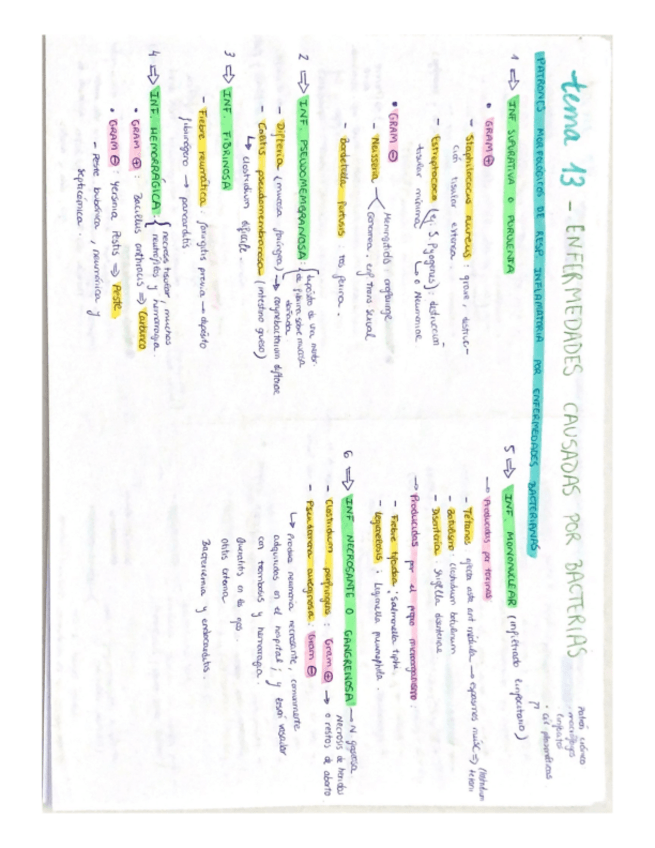 tema 13 - ENFERMEDADES CAUSADAS POR BACTERIAS
PATRONES MORFOLÓGICOS DE RESP. INFLAMATORIA POR ENFERMEDADES BACTERIANAS
1 ⇒ INF SUPURATIVA O PURULENTA
• GRAM ⊕
- Staphilococus aureus : grave, destruc-
ción tisular extensa.
- Estreptococo (ej. S Pyogenus) : destrucción
tisular mínima ↳ o Neumoniae
• GRAM ⊖
- Neisseria < Meningitidis : meninge
Gonorrea : enf trans sexual
- Bordetella Pertusis : tos ferina.
2 ⇒ INF. PSEUDOMEMBRANOSA : { depósito de una
de fibrina sobre mucosa
dañada
- Difteria (mucosa faríngea) → corynebacterium difteriae
- Colitis pseudomembranosa (intestino grueso)
↳ clostridium dificile.
3 ⇒ INF. FIBRINOSA
- Fiebre reumática : faringitis previa → depósito
fibrinógeno → pancarditis
4 ⇒ INF. HEMORRÁGICA : { necrosis tisular, muchos
neutrófilos y hemorragia.
• GRAM ⊕ : Bacillus anthracis ⇒ Carbunco
• GRAM ⊖ : Yersinia Pestis ⇒ Peste
- Peste bubónica, neumónica y
septicémica.
Patrón crónico
macrófagos
linfocitos
• cél plasmáticas
5 ⇒ INF. MONONUCLEAR (infiltrado linfocitario)
→ Producidas por toxinas
- Tétanos : afecta asta ant médula → espasmos musc ⇒ Clostridium tetani
- Botulismo : clostridium botulinum
- Disentería : Shigella disenteriae
→ Producidas por el propio microorganismo :
- Fiebre tifoidea : salmonella tiphi.
- Legionelosis : Legionella pneumophila.
6 ⇒ INF NECROSANTE O GANGRENOSA → N. gaseosa
Necrosis de heridas
- Clostridium perfringens : Gram ⊕ → o restos de aborto
- Pseudomona aureginosa : Gram ⊖
↳ Produce neumonía necrosante, comúnmente
adquiridas en el hospital, y lesión vascular
con trombosis y hemorragia.
Queratitis en el ojo.
Otitis externa
Bacteriemia y endocarditis.